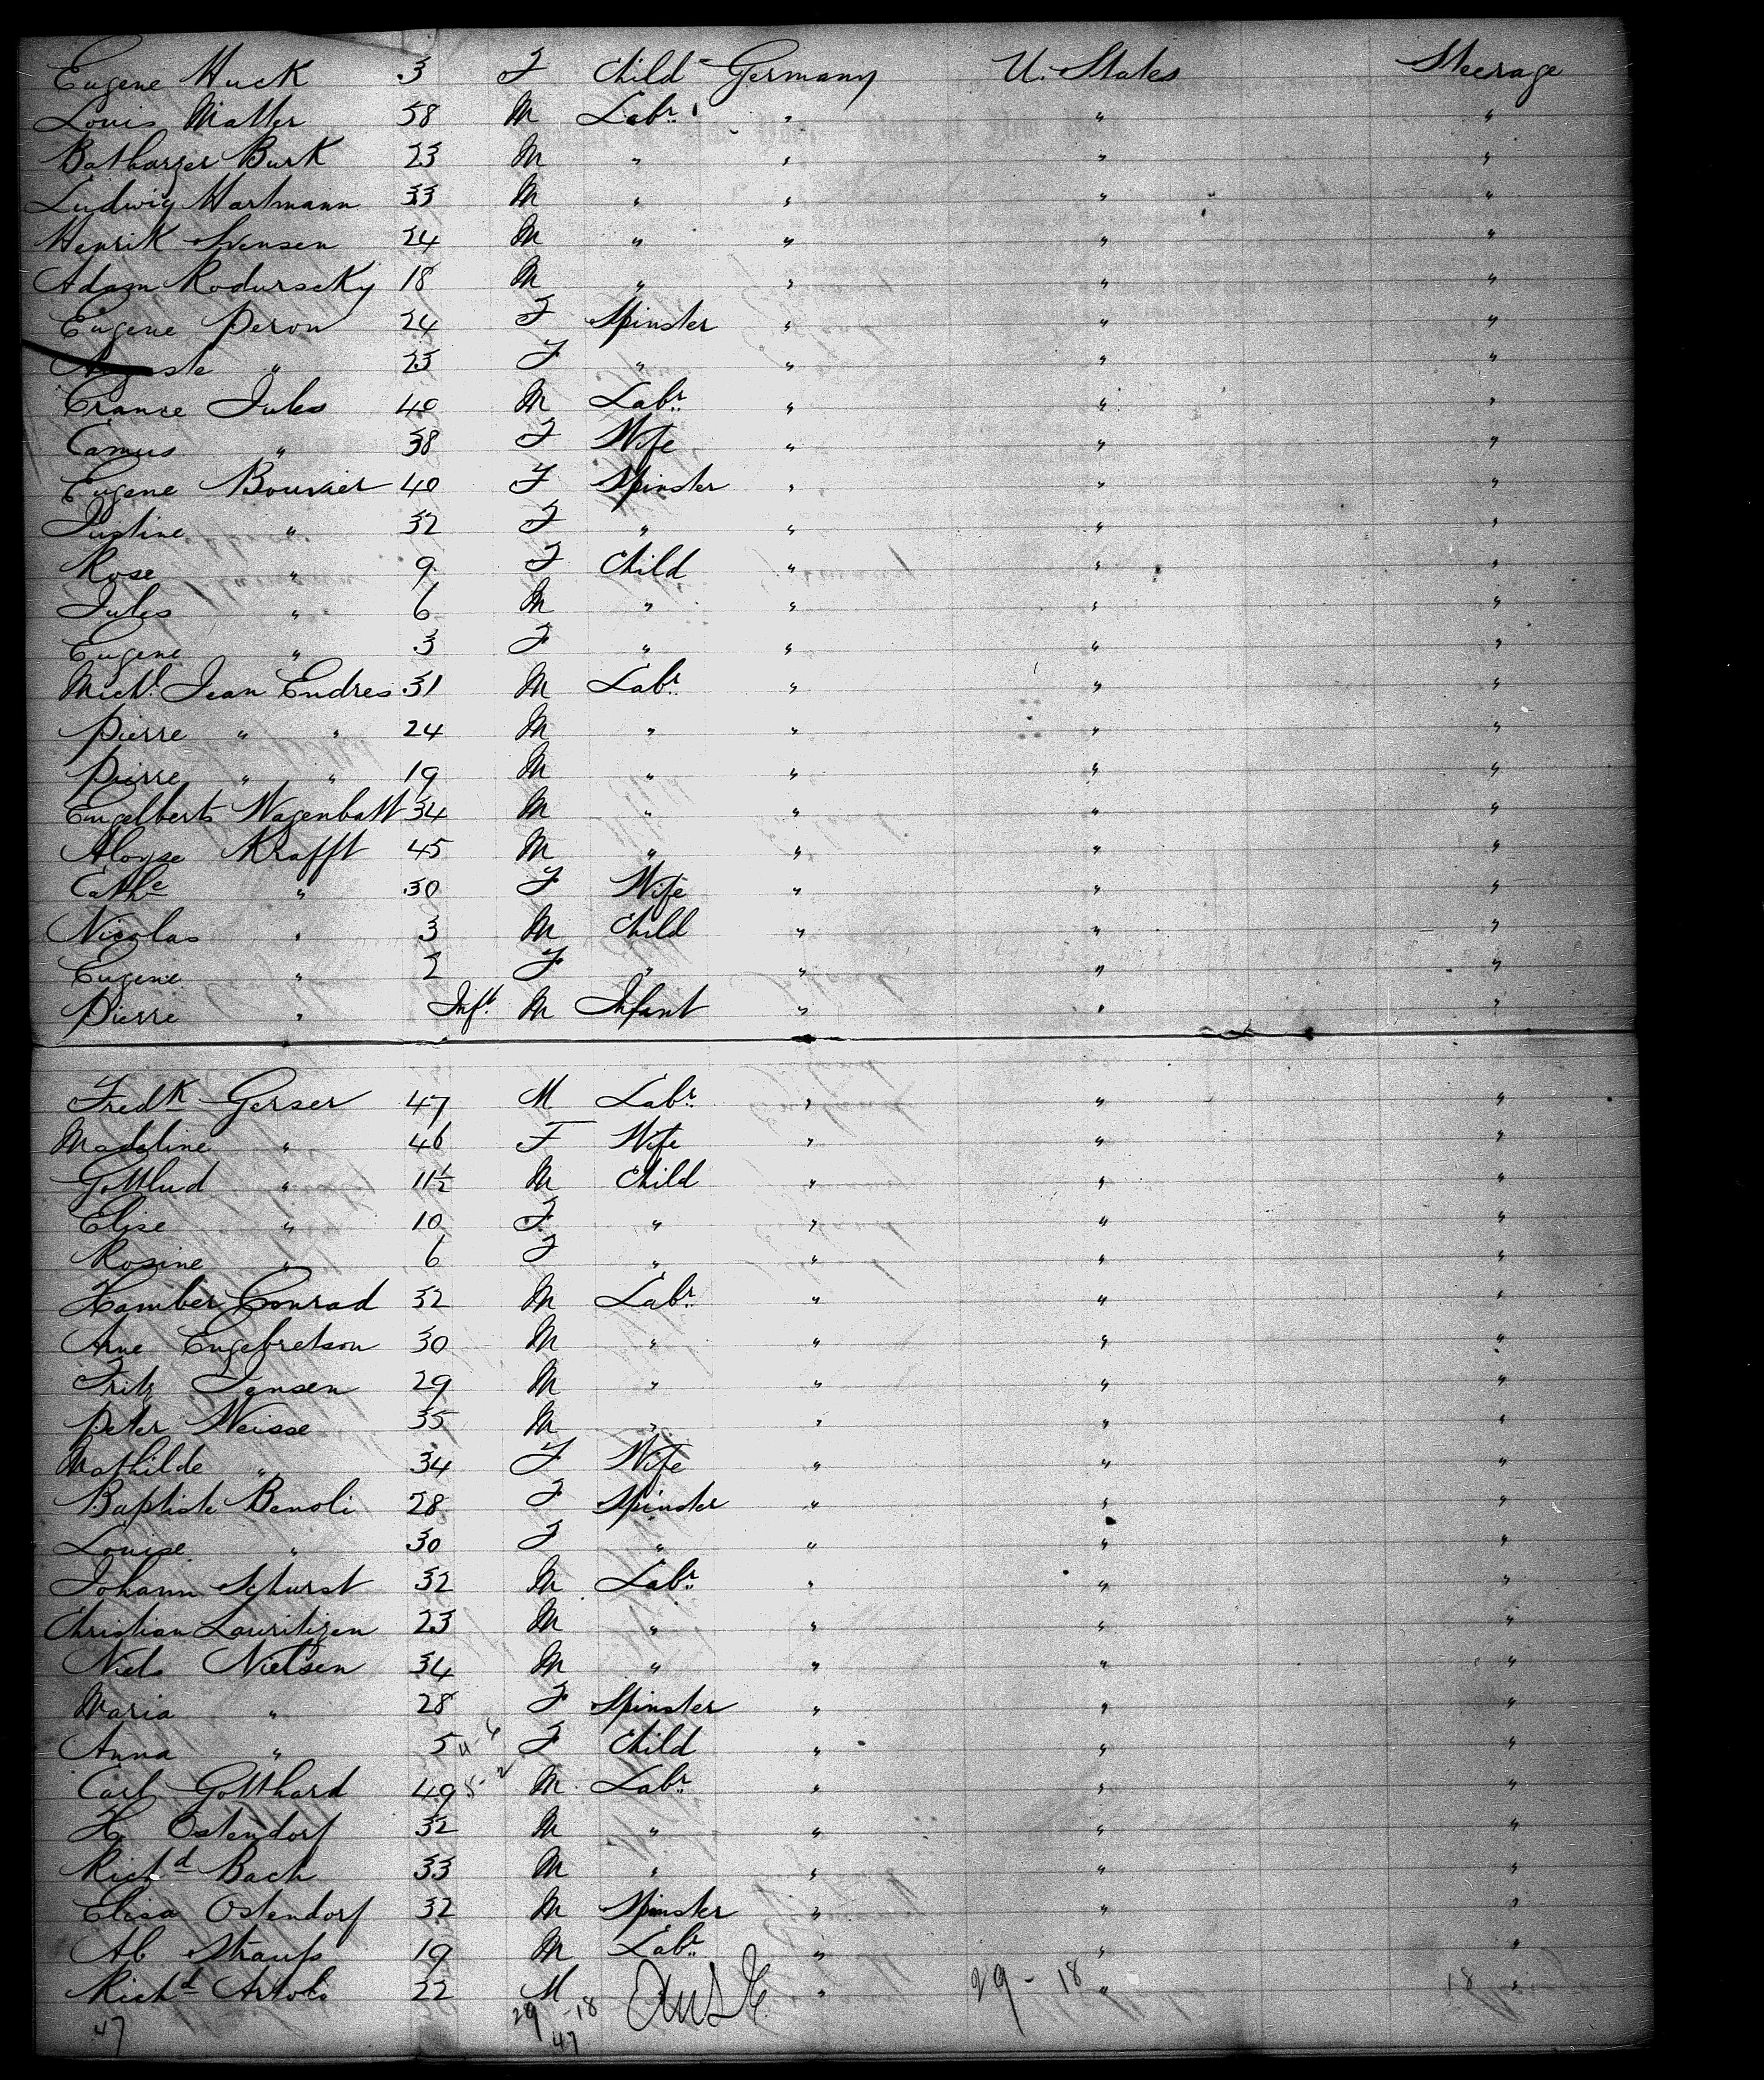 Eugene Huck 3 F Child Germany U. States Steerage
Louis Matter 58 M Labr. " " "
Batharzer Burk 23 M " " " "
Ludwig Hartmann 33 M " " " "
Henrik Svensen 24 M " " " "
Adam Rodurscky 18 M " " " "
Eugene Peron 24 F Spinster " " "
ste " 23 F " " " "
Crance Jules 40 M Labr. " " "
Camus " 38 F Wife " " "
Eugene Bouvier 40 F Spinster " " "
Justine " 32 F " " " "
Rose " 9 F Child " " "
Jules " 6 M " " " "
Eugene " 3 F " " " "
Michl. Jean Endres 31 M Labr. " " "
Pierre " " 24 M " " " "
Pierre " " 19 M " " " "
Engelberts Wagenbatt 34 M " " " "
Aloyse Krafft 45 M " " " "
Cathe " 30 F Wife " " "
Nicolas " 3 M Child " " "
Eugene " 2 F " " " "
Pierre " Inft. M Infant " " "
Fredk Gerser 47 M Labr. " " "
Madeline " 46 F Wife " " "
Gottlud " 11½ M Child " " "
Elise " 10 F " " " "
Rosine " 6 F " " " "
Hamber Conrad 32 M Labr. " " "
Arne Engebretson 30 M " " " "
Fritz Jansen 29 M " " " "
Peter Weisse 35 M " " " "
Mathilde " 34 F Wife " " "
Baptiste Benoli 28 F Spinster " " "
Louise " 30 F " " " "
Johann Schurst 32 M Labr. " " "
Christian Lauritizen 23 M " " " "
Niels Nielsen 34 M " " " "
Maria " 28 F Spinster " " "
Anna " 5 F Child " " "
Carl Gotthard 49 M Labr. " " "
H. Ostendorf 32 M " " " "
Richd Bach 33 M " " " "
Elisa Ostendorf 32 M Spinster " " "
Ab Strauss 19 M Labr. " " "
Richd Artols 22 M " 29-18 " 18 "
47 29-18
47